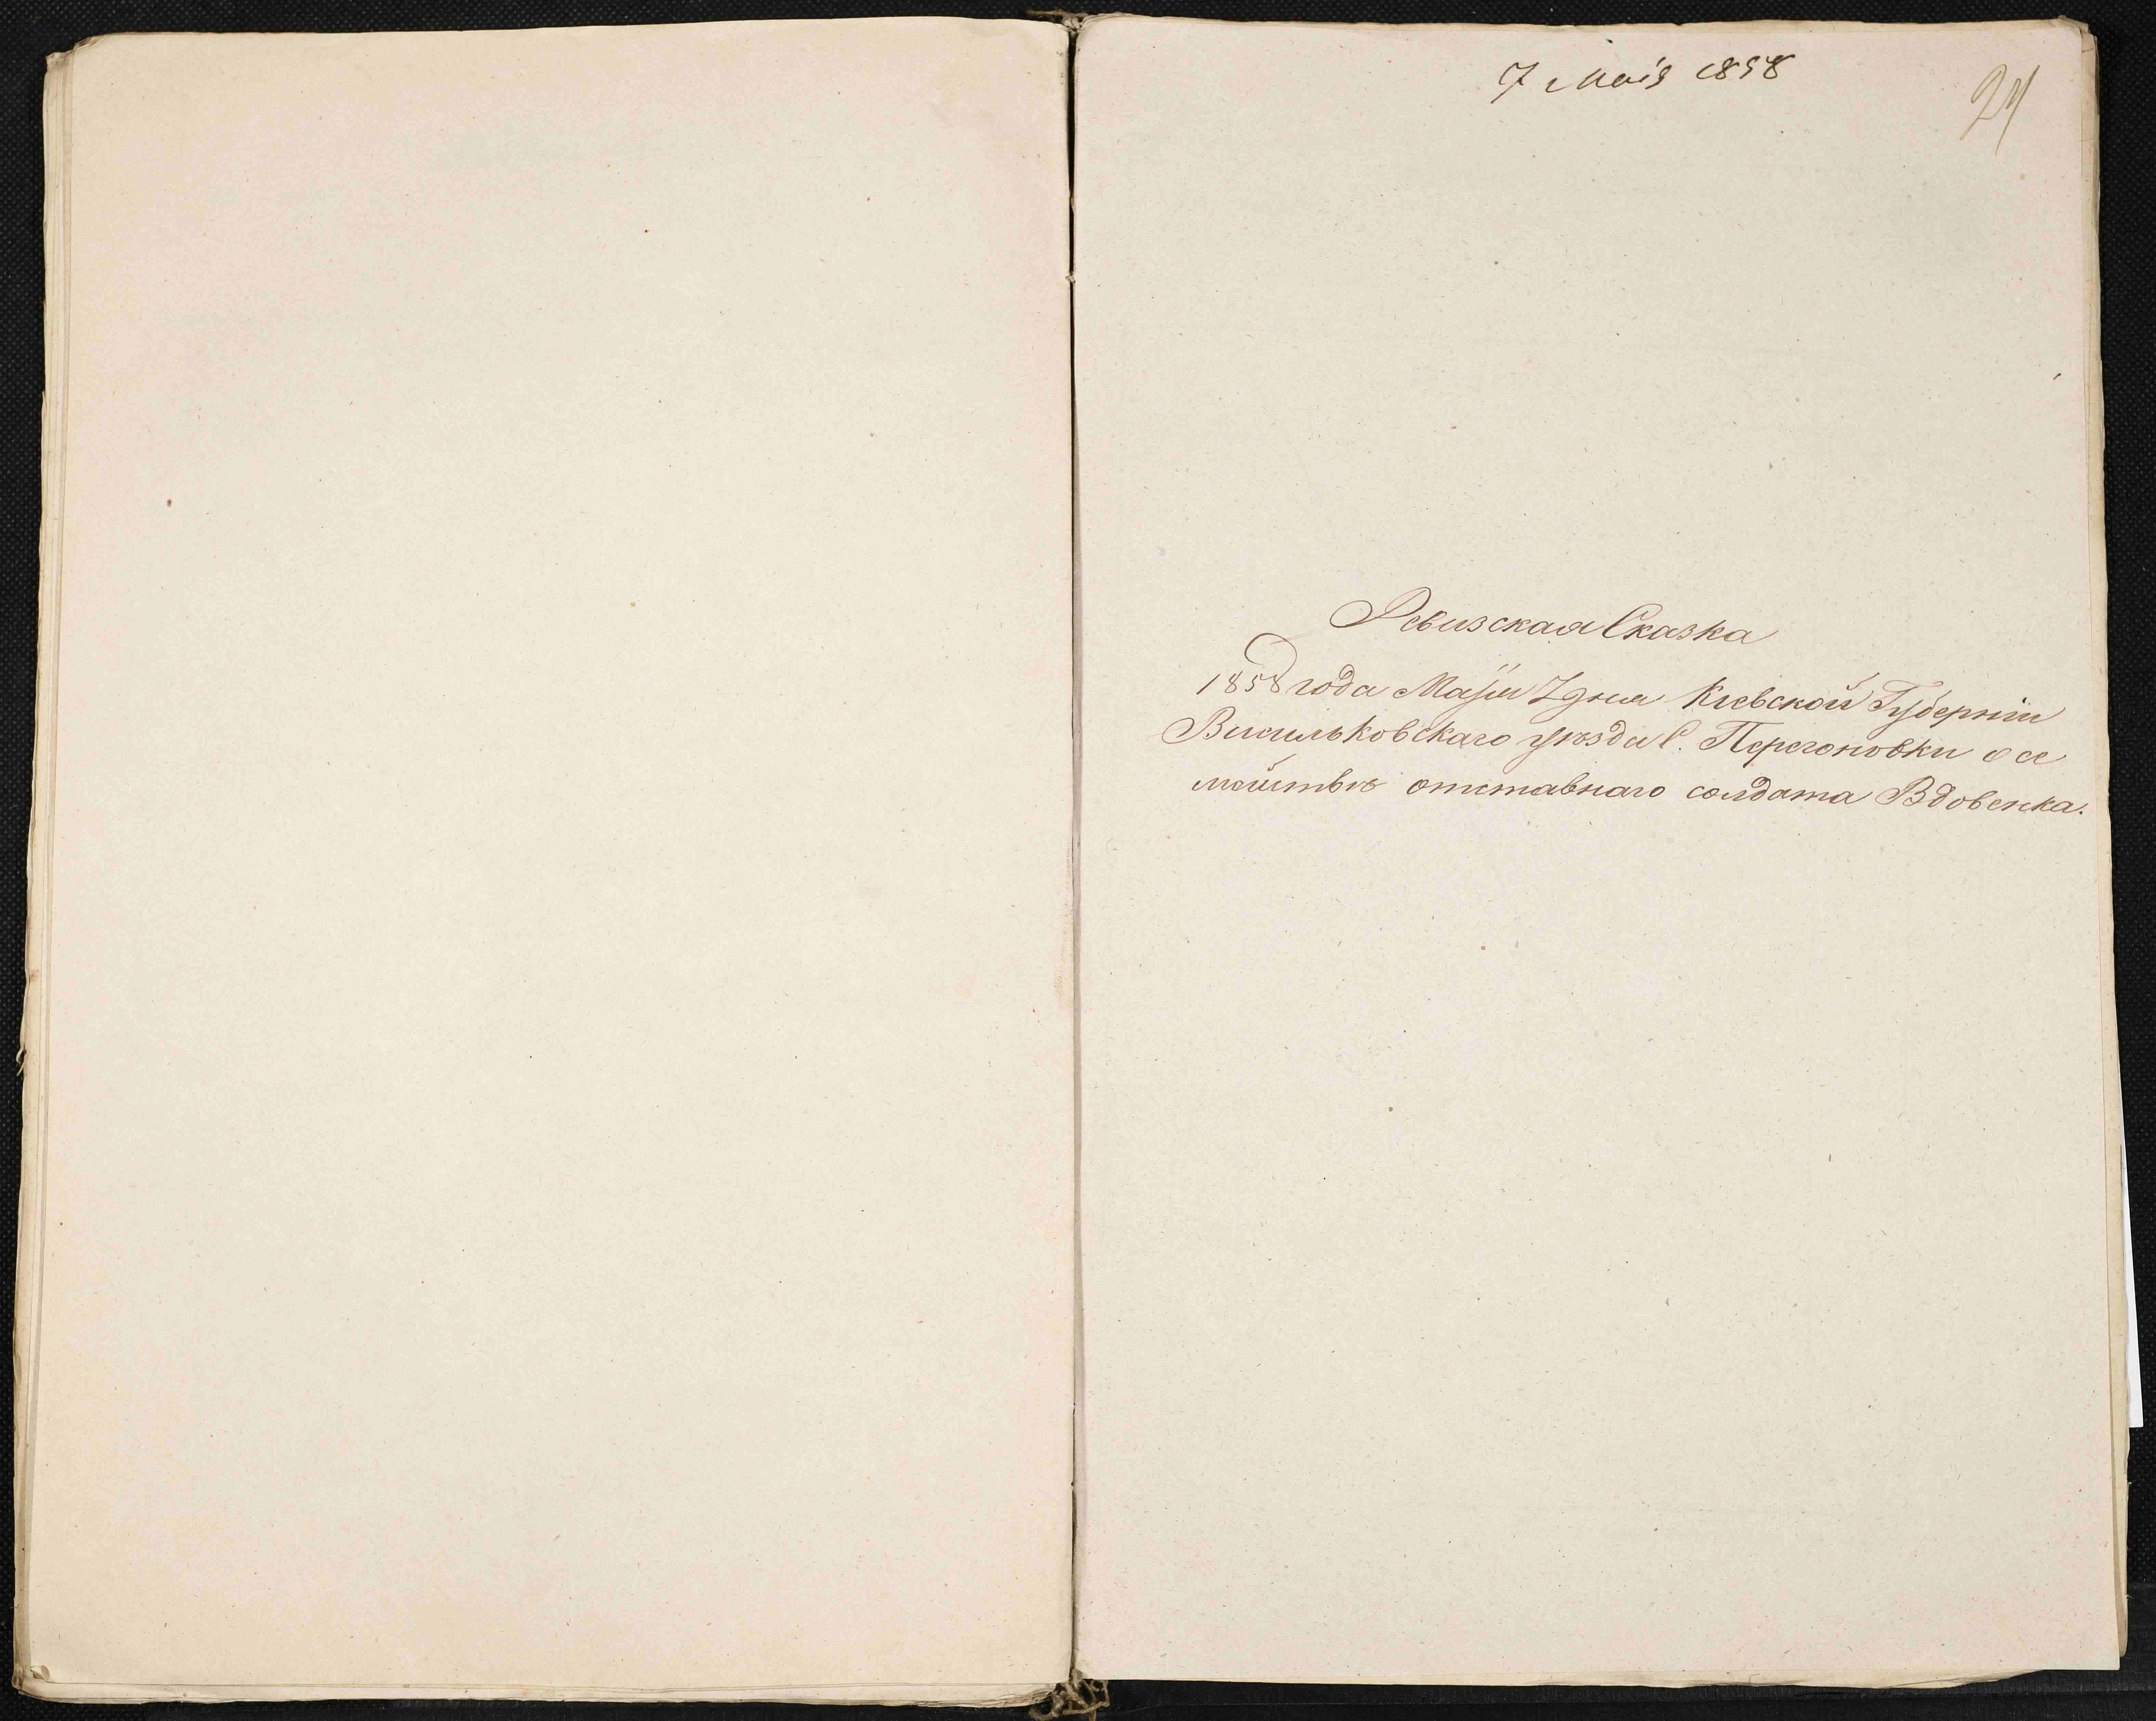 7 Маія 1858
Ревизская Сказка
1858 года Маія 7 дня Кіевской Губерніи
Васильковскаго уѣзда С. Перегоновки о се
мействѣ отставнаго солдата Вдовенка.